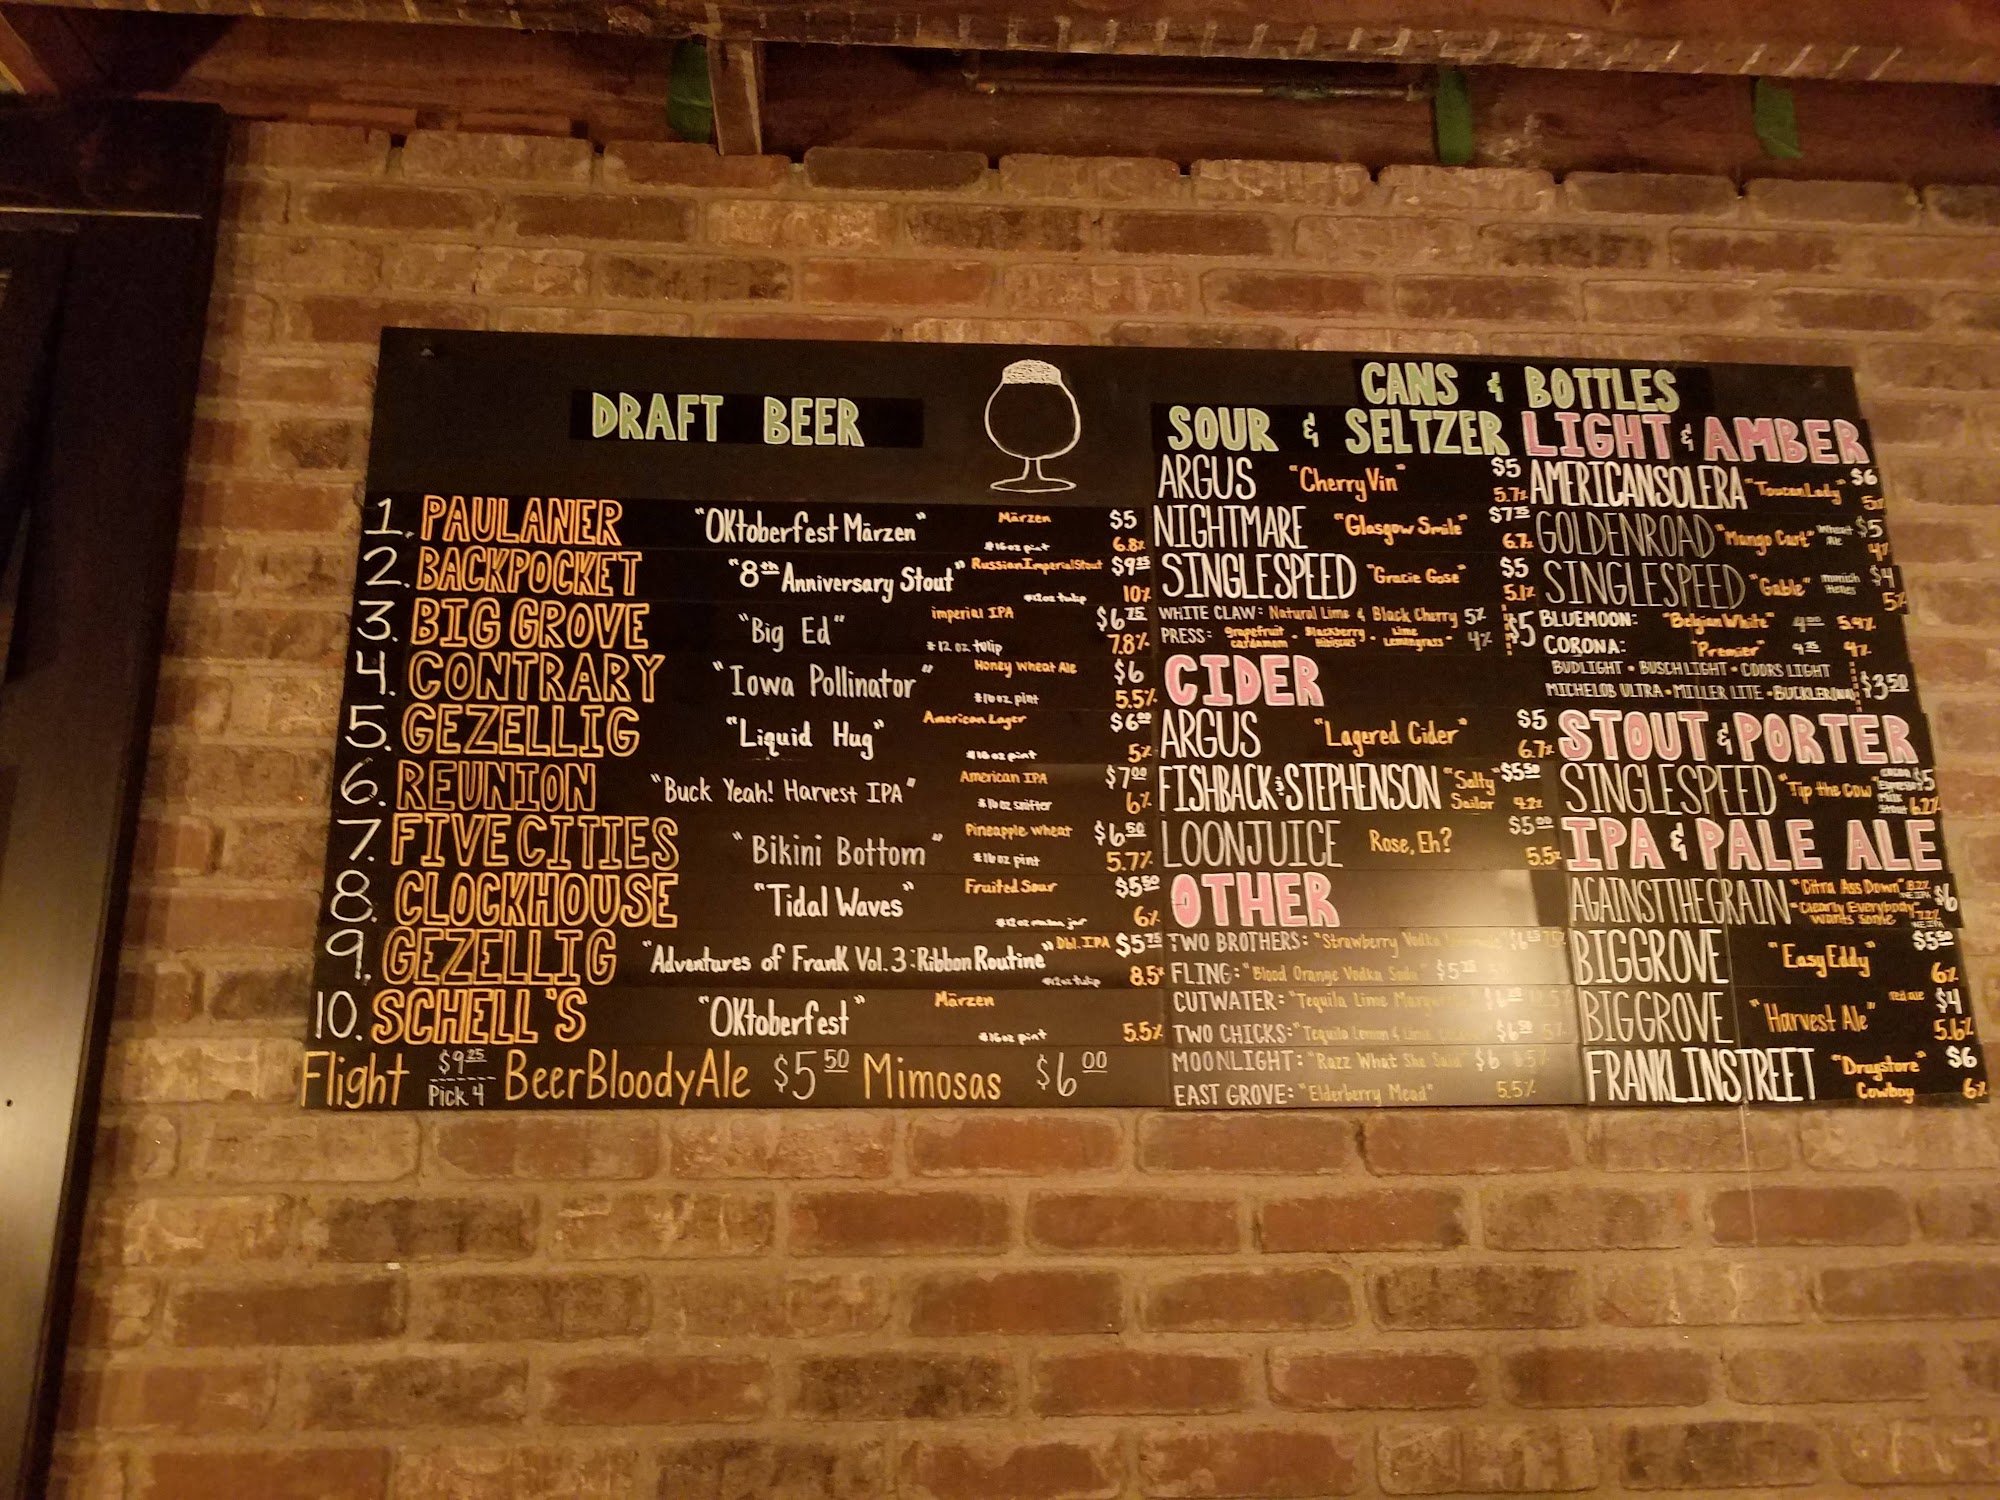 DRAFT BEER
1. PAULANER "OKtoberfest Märzen" Märzen *16oz pint $5 6.8%
2. BACKPOCKET "8th Anniversary Stout" Russian Imperial Stout *12oz tulip 10%
3. BIG GROVE "Big Ed" imperial IPA *12 oz tulip $6.75 7.8%
4. CONTRARY "Iowa Pollinator" Honey Wheat Ale *16oz pint $6 5.5%
5. GEZELLIG "Liquid Hug" American Lager *16oz pint $6.00 5%
6. REUNION "Buck Yeah! Harvest IPA" American IPA *16oz snifter $7.00 6%
7. FIVE CITIES "Bikini Bottom" Pineapple Wheat *16oz pint $6.50 5.7%
8. CLOCKHOUSE "Tidal Waves" Fruited Sour *12oz mason jar $5.50 6%
9. GEZELLIG "Adventures of Frank Vol. 3: Ribbon Routine" Dbl. IPA *12oz tulip $5.75 8.5%
10. SCHELL'S "OKtoberfest" Märzen *16oz pint 5.5%
Flight $9.25 Pick 4 BeerBloodyAle $5.50 Mimosas $6.00
CANS & BOTTLES
SOUR & SELTZER
ARGUS "Cherry Vin" $5 5.7%
NIGHTMARE "Glasgow Smile" 6.7%
SINGLESPEED "Gracie Gose" $5 5.1%
WHITE CLAW: Natural Lime & Black Cherry 5%
PRESS: grapefruit cardamom - Blackberry Hibiscus - Lime Lemongrass 4% $5
CIDER
ARGUS "Lagered Cider" $5 6.7%
FISHBACK & STEPHENSON "Salty Sailor" $5.50 4.2%
LOONJUICE Rose, Eh? $5.00 5.5%
OTHER
TWO BROTHERS: "Strawberry Vodka
FLING: "Blood Orange Vodka Soda"
CUTWATER: "Tequila Lime
TWO CHICKS: "Tequila Lemon &
MOONLIGHT: "Razz What She Said" $6
EAST GROVE: "Elderberry Mead" 5.5%
LIGHT & AMBER
AMERICAN SOLERA "Toucan Lady" $6
GOLDENROAD "Mango Cart" Wheat Ale $5 4%
SINGLESPEED "Gable" Munich Helles $4 5%
BLUEMOON: "Belgian White" 5.4%
CORONA: "Premier" 4%
BUDLIGHT • BUSCH LIGHT • COORS LIGHT
MICHELOB ULTRA • MILLER LITE • BUCKLER $3.50
STOUT & PORTER
SINGLESPEED "Tip the Cow" Espresso Milk Stout $5 6.2%
IPA & PALE ALE
AGAINST THE GRAIN "Citra Ass Down" 8.2% NE IPA $6
"Clearly Everybody wants some" NE IPA
BIGGROVE "Easy Eddy" $5.50 6%
BIGGROVE "Harvest Ale" red ale $4 5.6%
FRANKLINSTREET "Drugstore Cowboy" $6 6%